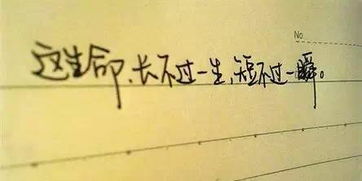 No.
这生命,长不过一生,短不过一瞬。